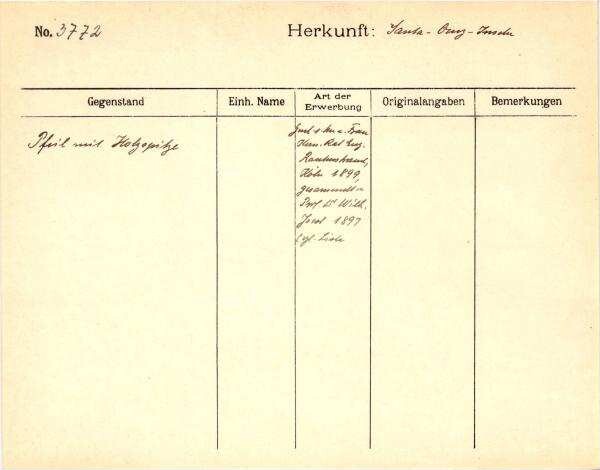 No. 3772 Herkunft: Santa-Cruz-Inseln
Gegenstand Einh. Name Art der Erwerbung Originalangaben Bemerkungen
Pfeil mit Holzspitze
Frau
Rautenstrauch,
Köln 1899,
gesammelt v.
Prof. Dr Wilh.
Joest 1897
Liste